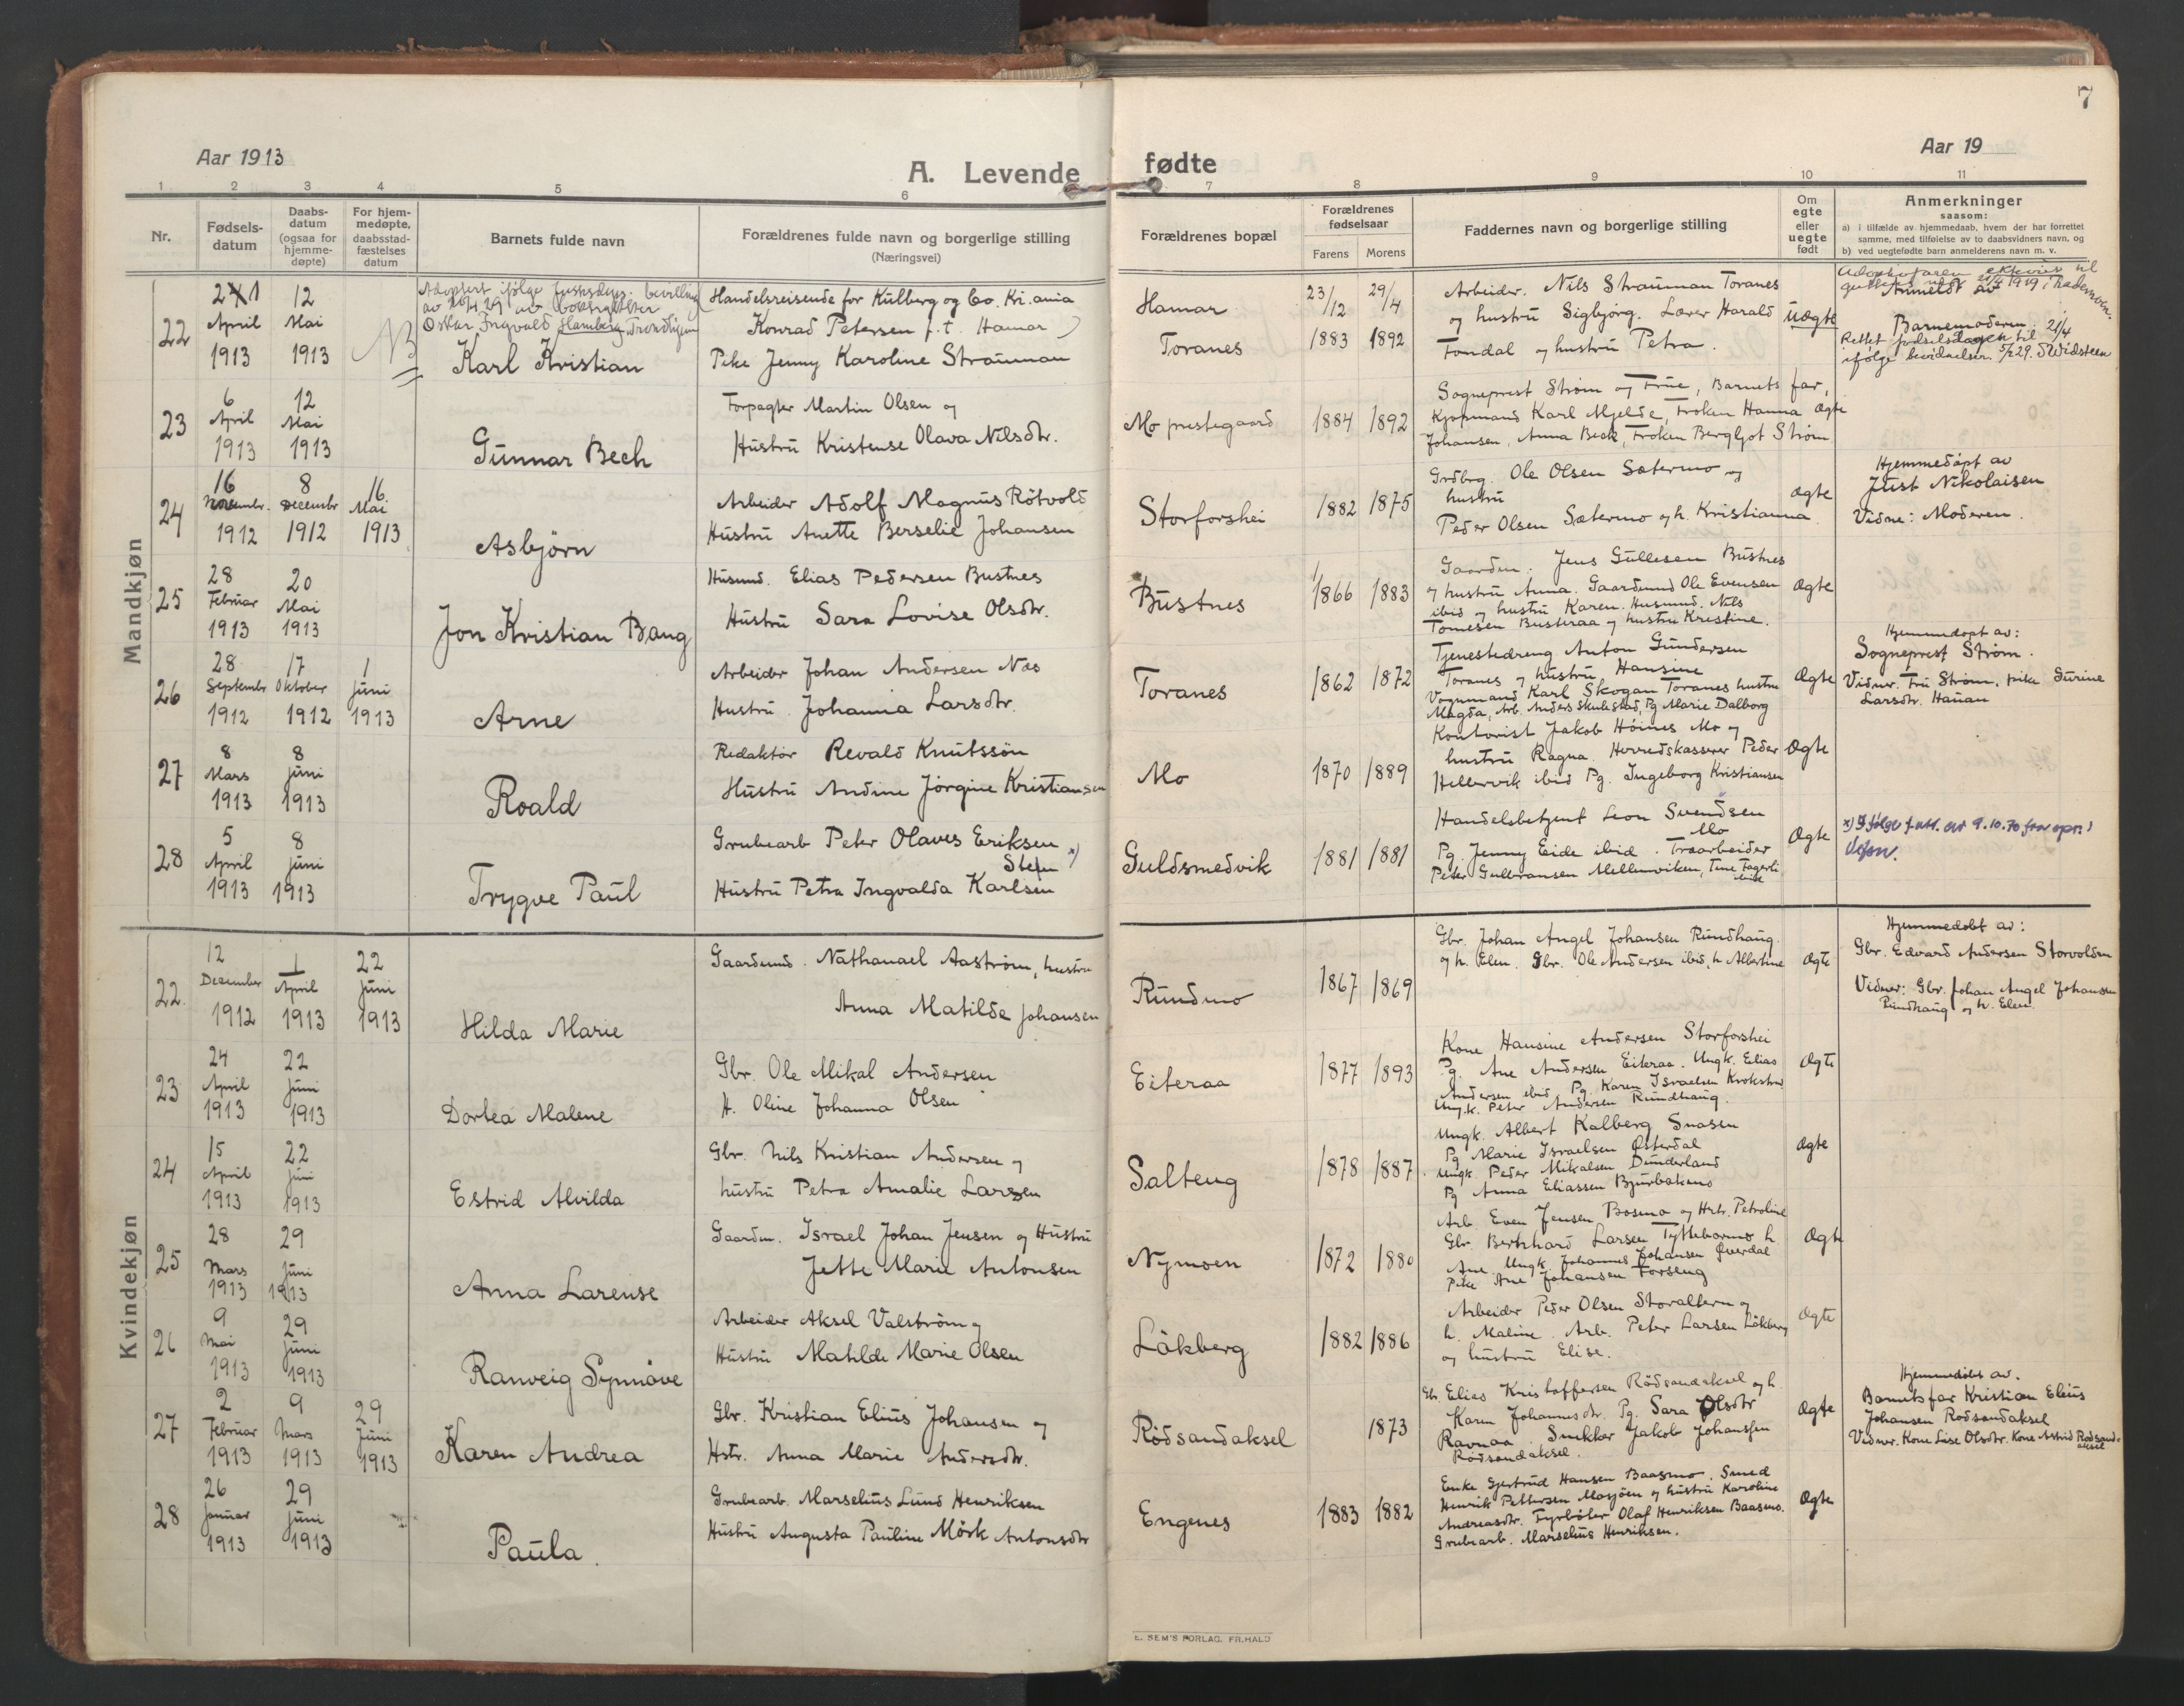 7
Aar 1913
A. Levende fødte
Aar 19
1 2 3 4 5 6 7 8 9 10 11
Nr.
Fødsels-
datum
Daabs-
datum
(ogsaa for
hjemme-
døpte)
For hjem-
medøpte,
daabsstad-
fæstelses
datum
Barnets fulde navn
Forældrenes fulde navn og borgerlige stilling
(Næringsvei)
Forældrenes bopæl
Forældrenes
fødselsaar
Farens Morens
Faddernes navn og borgerlige stilling
Om
egte
eller
uegte
født
Anmerkninger
saasom:
a) i tilfælde av hjemmedaab, hvem der har forrettet
samme, med tilføielse av to daabsvidners navn, og
b) ved uegtefødte barn anmelderens navn m. v.
Mandkjøn
22
April
1913
12
Mai
1913
NB
Adoptert ifølge bevilling
av 26/4 29 av
Oskar Ingvald Hamberg, Trondhjem
Karl Kristian
Handelsreisende for Kulberg og Co. Kr.ania
Konrad Petersen p.t. Hamar
Pike Jenny Karoline Strauman
Hamar
Toranes
23/12
1883
29/4
1892
Arbeider. Nils Strauman Toranes
og hustru Sigbjørg. Lærer Harald
Fondal og hustru Petra.
Uægte
Anmeldt av
Barnemoderen.
Rettet fødselsdagen til 21/4
ifølge bevidnelser 5/2 29. SWidsteen
23
6
April
1913
12
Mai
1913
Gunnar Bech
Forpagter Martin Olsen og
Hustru Kristense Olava Nilsdtr.
Mo prestegaard
1884 1892
Sogneprest Strøm og Frue, Barnets far,
Kjøpmand Karl Mjelde, Frøken Hanna
Johansen, Anna Beck, Frøken Bergljot Strøm
Ægte
24
16
Novembr.
1912
8
Decembr
1912
16
Mai
1913
Asbjörn
Arbeider Adolf Magnus Rötvold
Hustru Anette Berselie Johansen
Storforshei
1882 1875
Grdbrg. Ole Olsen Sætermo og
hustru
Peder Olsen Sætermo og h. Kristianna.
Ægte
Hjemmedøpt av
Just Nikolaisen
Vidne: Moderen.
25
28
Februar
1913
20
Mai
1913
Jon Kristian Bang
Husmd. Elias Pedersen Bustnes
Hustru Sara Lovise Olsdtr.
Bustnes
1866 1883
Gaardm. Jens Gullesen Bustnes
og hustru Anna. Gaardmd Ole Evensen
ibid og hustru Karen. Husmd. Nils
Tomesen Busteraa og hustru Kristine.
Ægte
26
28
Septembr
1912
17
Oktober
1912
1
Juni
1913
Arne
Arbeider Johan Andersen Næs
Hustru. Johanna Larsdtr.
Toranes
1862 1872
Tjenestedreng Anton Gundersen
Toranes og hustru Hansine
Vognmand Karl Skogan Toranes hustru
Magda, Arb. Anders Skulestad, Pg Marie Dalborg
Ægte
Hjemmedøpt av:
Sogneprest Strøm.
Vidner. Fru Strøm. pike Gurine
Larsdtr. Hauan
27
8
Mars
1913
8
Juni
1913
Roald
Redaktør Revald Knutssön
Hustru Andine Jørgine Kristiansen
Mo
1870 1889
Kontorist Jakob Höines Mo og
hustru Ragna. Herredskasserer Peder
Hellervik ibid Pg. Ingeborg Kristiansen
Ægte
28
5
April
1913
8
Juni
1913
Trygve Paul
Grubearb Peter Olaves Eriksen
Stefn x)
Hustru Petra Ingvalda Karlsen
Guldsmedvik
1881 1881
Handelsbetjent Leon Svendsen
Mo
Pg. Jenny Eide ibid. Træarbeider
Peter Gulbransen Mellemviken, Tine Fagerli
ibid
Ægte
x) Ifølge f.att. av 9.10.70 fra spr. i
Vefsn.
Kvindekjøn
22
12
December
1912
1
April
1913
22
Juni
1913
Hilda Marie
Gaardmd. Nathanael Aaström, hustru
Anna Matilde Johansen
Rundmo
1867 1869
Gbr. Johan Angel Johansen Rundhaug.
og h. Elen. Gbr. Ole Andersen ibid, h. Albertine
Ægte
Hjemmedøbt av:
Gbr. Edvard Andersen Storvolden
Vidner: Gbr. Johan Angel Johansen
Rundhaug og h. Elen.
23
24
April
1913
22
Juni
1913
Dortea Malene
Gbr. Ole Mikal Andersen
H. Oline Johanna Olsen
Eiteraa
1877 1893
Kone Hansine Andersen Storforshei
Pg. Ane Andersen Eiteraa. Ungk. Elias
Andersen ibid Pg. Karen Israelsen
Ung.k. Peter Andersen Rundhaug.
Ægte
24
15
April
1913
22
Juni
1913
Estrid Alvilda
Gbr. Nils Kristian Andersen og
hustru Petra Amalie Larsen
Salteng
1878 1887
Ungk. Albert Kalberg Snasen
Pg Marie Israelsen Østerdal
Ungk. Peder Mikalsen Dunderland
Pg Anna Eliassen Bjurbækmo
Ægte
25
28
Mars
1913
29
Juni
1913
Anna Larense
Gaardm. Israel Johan Jensen og Hustru
Jette Marie Antonsen
Nymoen
1872 1880
Arb. Even Jensen Bosmo og Hstr. Petroline
Gbr. Bernhard Larsen Tyttebærmo h.
Ane. Ungk. Johannes Johansen Øverdal
Pike Ane Johansen Forseng
Ægte
26
9
Mai
1913
29
Juni
1913
Ranveig Synnöve
Arbeider Aksel Valström og
Hustru Matilde Marie Olsen
Lökberg
1882 1886
Arbeider Peder Olsen Storaltern og
h. Maline. Arb. Peter Larsen Lökberg
og hustru Elise.
Ægte
27
2
Februar
1913
9
Mars
1913
29
Juni
1913
Karen Andrea
Gbr. Kristian Elius Johansen og
Hstr. Anna Marie Andersdtr.
Rödsandaksel
1873
Gbr. Elias Kristoffersen Rödsandaksel og h.
Karen Johannesdtr. Pg. Sara Olsdtr
Ravnaa. Snekker Jakob Johanssen
Rödsandaksel.
Ægte
Hjemmedøbt av.
Barnets far Kristian Elius
Johansen Rödsandaksel
Vidner. Kone Lise Olsdtr. Kone Astrid Rødsand-
aksel
28
26
Januar
1913
29
Juni
1913
Paula.
Grubearb. Marselius Lund Henriksen
Hustru Augusta Pauline Mörk Antonsdtr
Engenes
1883 1882
Enke Gjertrud Hansen Baasmo. Smed
Henrik Pettersen Mosjöen og hustru Karoline
Andreasdtr. Fyrböter Olaf Henriksen Baasmo.
Grubearb. Marselius Henriksen.
Ægte
E. SEM'S FORLAG. FR.HALD